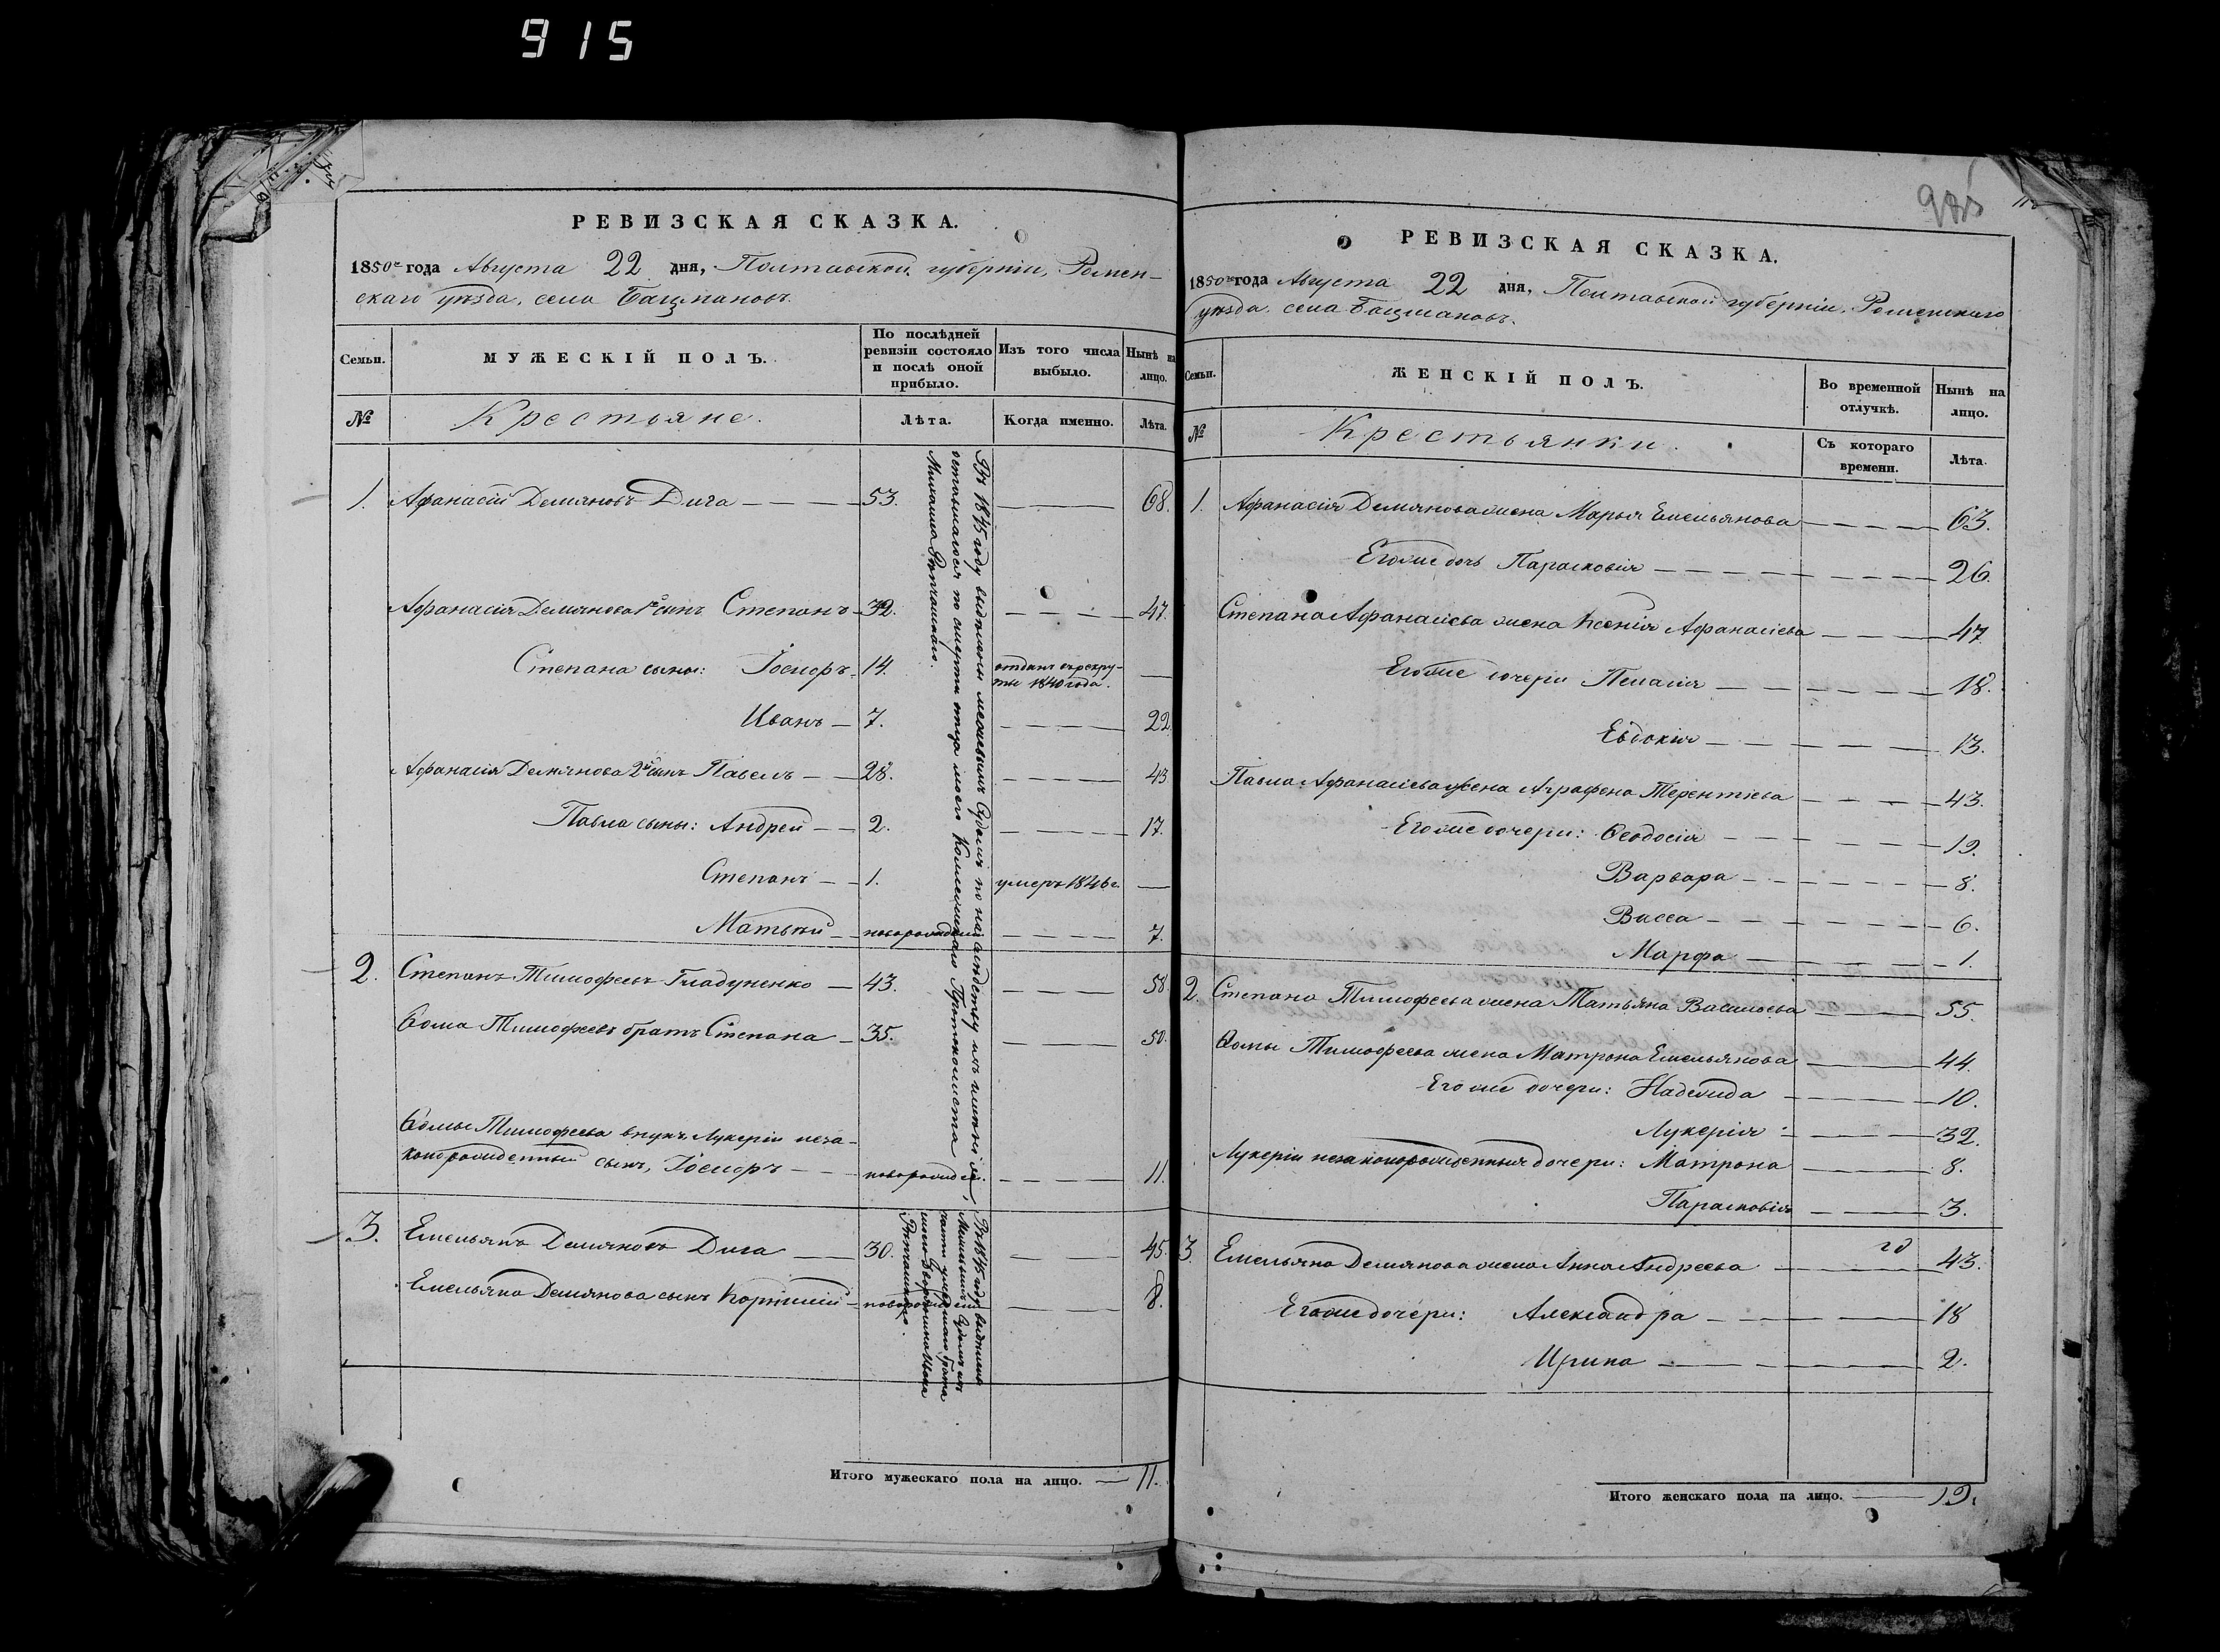 915
РЕВИЗСКАЯ СКАЗКА.
1850го года Августа 22 дня, Полтавской губерніи, Ромен-
скаго уѣзда, села Бацмановъ.
Семьи.
МУЖЕСКІЙ ПОЛЪ.
По послѣдней ревизіи состояло и послѣ оной прибыло.
Изъ того числа выбыло.
Нынѣ на лицо.
№
Крестьяне.
Лѣта.
Когда именно.
Лѣта.
1. Афанасій Демяновъ Дига — 53. — 68.
Афанасія Демянова 1й сынъ Степанъ — 32. — 47.
Степана сыны: Іосифъ — 14. отданъ въ рекру-
ты 1840 года. —
Иванъ — 7. — 22
Афанасія Демянова 2й сынъ Павелъ — 28. — 43
Павла сыны: Андрей — 2. — 17.
Степанъ — 1. умеръ 1846 г. —
Матвѣй — новорожденный — 7.
2. Степанъ Тимофеевъ Гладуненко — 43. — 58.
Ѳома Тимофеевъ братъ Степана — 35. — 50.
Ѳомы Тимофеева внукъ Лукеріи неза-
коннорожденный сынъ, Іосифъ — новорожде. — 11.
3. Емельянъ Демяновъ Дига — 30. — 45.
Емельяна Демянова сынъ Корнилій — новорожден — 8.
Въ 1845 году выдѣлены межевымъ Судомъ по наслѣдству изъ имѣнія,
оставшагося по смерти отца моего Коллежскаго Протоколиста
Михаила
Въ 1845 году выдѣлены
Межевымъ Судомъ изъ
части умершаго брата
моего Дворянина Ивана
Итого мужескаго пола на лицо. — 11.
РЕВИЗСКАЯ СКАЗКА.
1850го года Августа 22 дня, Полтавской губерніи, Роменскаго
уѣзда, села Бацмановъ.
Семьи.
ЖЕНСКІЙ ПОЛЪ.
Во временной отлучкѣ.
Нынѣ на лицо.
№
Крестьянки.
Съ котораго времени.
Лѣта.
1. Афанасія Демянова жена Марья Емельянова — 63.
Его же дочь Парасковія — 26.
Степана Афанасіева жена Ксенія Афанасіева — 47
Его же дочери Пелагія — 18.
Евдокія — 13.
Павла Афанасіева жена Аграфена Терентіева — 43.
Его же дочери: Ѳеодосія — 19.
Варвара — 8.
Васса — 6.
Марфа — 1.
2. Степана Тимофеева жена Татьяна Васильева — 55.
Ѳомы Тимофеева жена Матрона Емельянова — 44.
Его же дочери: Надежда — 10.
Лукерія — 32.
Лукеріи незаконорожденныя дочери: Матрона — 8.
Парасковія — 3.
3. Емельяна Демянова жена Анна Андреева — 43.
Его же дочери: Александра — 18
Ирина — 2.
Итого женскаго пола на лицо. — 19.